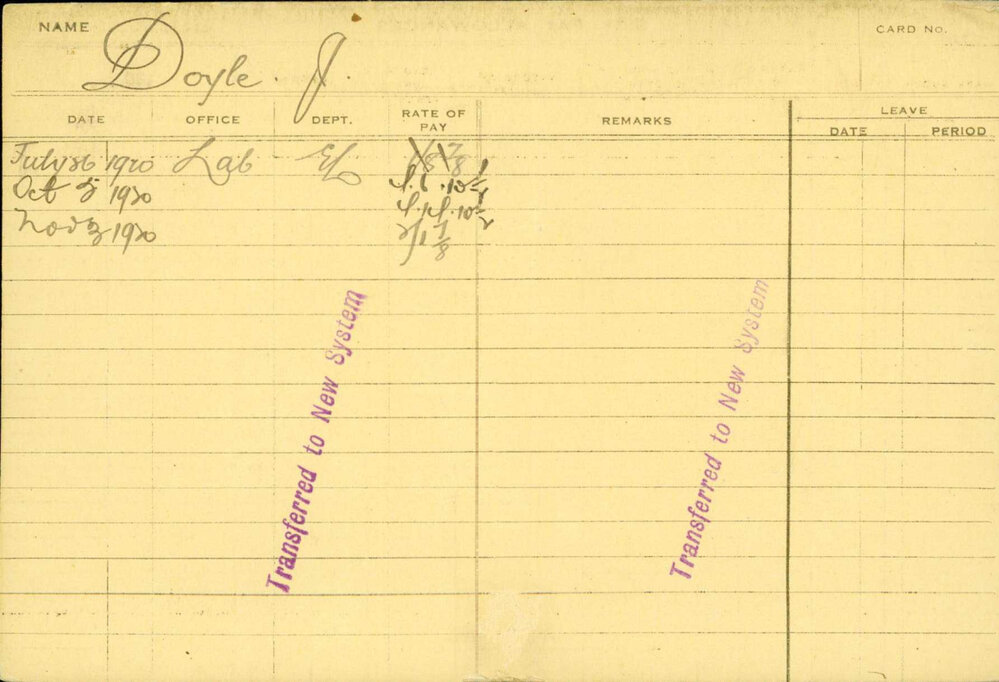 NAME Doyle. J. CARD NO.
DATE OFFICE DEPT. RATE OF PAY REMARKS LEAVE
DATE PERIOD
July 26 1920 Lab
Oct 5 1920
Nov 3 1920
Transferred to New System
Transferred to New System